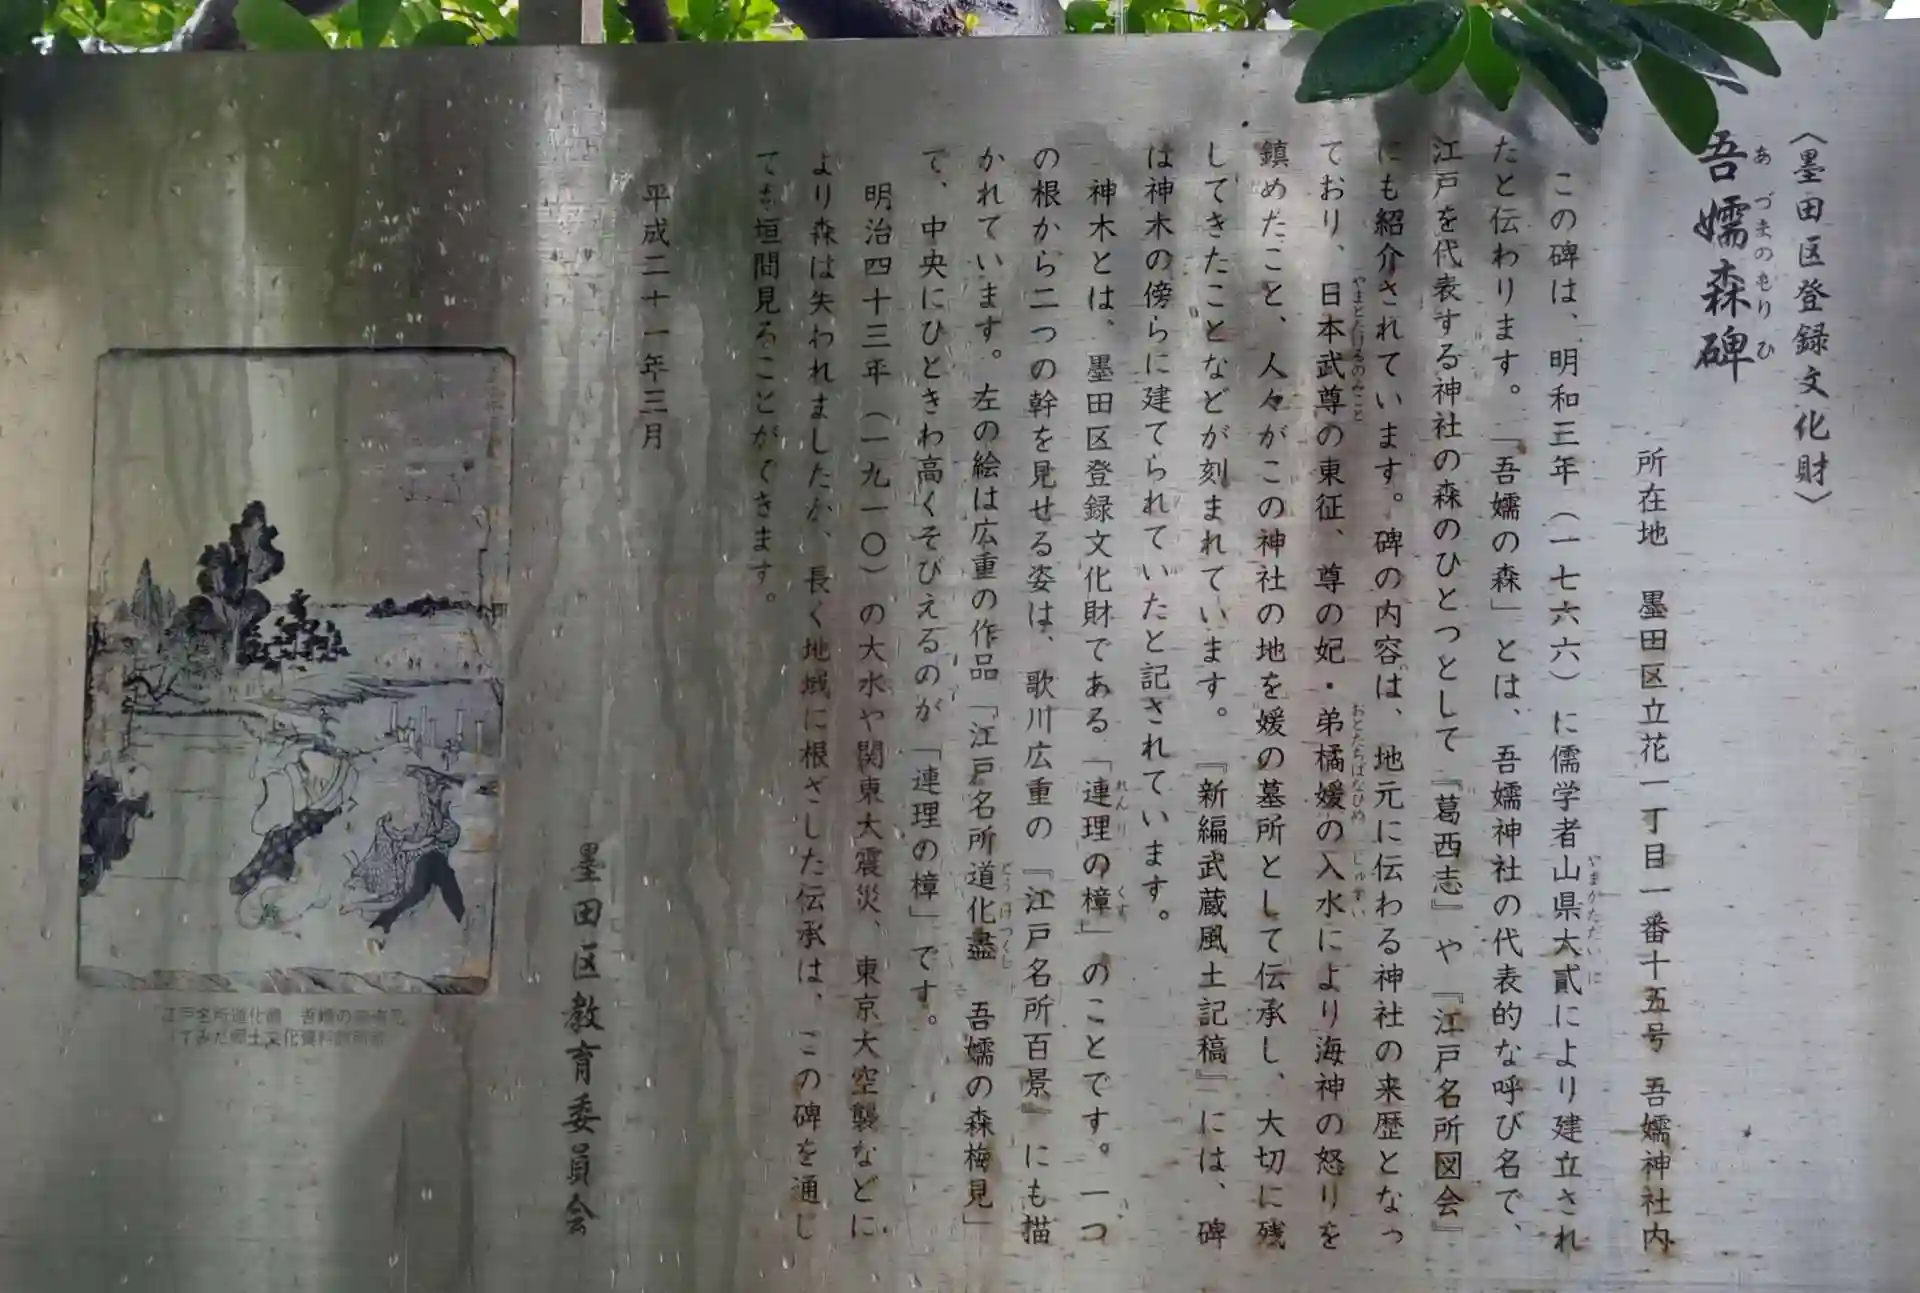 〈墨田区登録文化財〉
吾嬬森碑
あづまのもりひ
所在地　墨田区立花一丁目一番十五号 吾嬬神社内
この碑は、明和三年（一七六六）に儒学者山県大貳により建立され
たと伝わります。「吾嬬の森」とは、吾嬬神社の代表的な呼び名で、
江戸を代表する神社の森のひとつとして『葛西志』や『江戸名所図会』
にも紹介されています。碑の内容は、地元に伝わる神社の来歴となっ
ており、日本武尊の東征、尊の妃・弟橘媛の入水により海神の怒りを
鎮めたこと、人々がこの神社の地を媛の墓所として伝承し、大切に残
してきたことなどが刻まれています。『新編武蔵風土記稿』には、碑
は神木の傍らに建てられていたと記されています。
神木とは、墨田区登録文化財である「連理の樟」のことです。一つ
の根から二つの幹を見せる姿は、歌川広重の『江戸名所百景』にも描
かれています。左の絵は広重の作品「江戸名所道化盡　吾嬬の森梅見」
で、中央にひときわ高くそびえるのが「連理の樟」です。
明治四十三年（一九一〇）の大水や関東大震災、東京大空襲などに
より森は失われましたが、長く地域に根ざした伝承は、この碑を通じ
ても垣間見ることができます。
平成二十一年三月
墨田区教育委員会